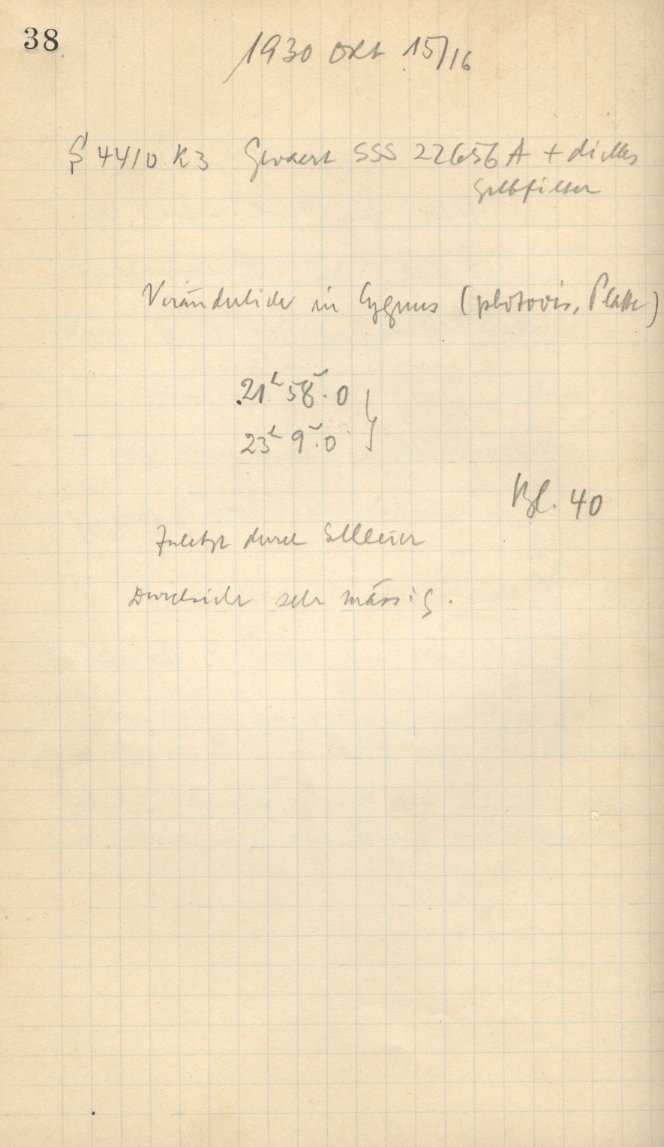 38
1930 Okt 15/16
S 4410 K3 Gevaert SSS 22656 A + dickes
Gelbfilter
Veränderliche in Cygnus (photovis. Platte)
21h 58m.0
23h 9m.0
Bl. 40
Zuletzt durch Schleier
Durchsicht sehr mässig.